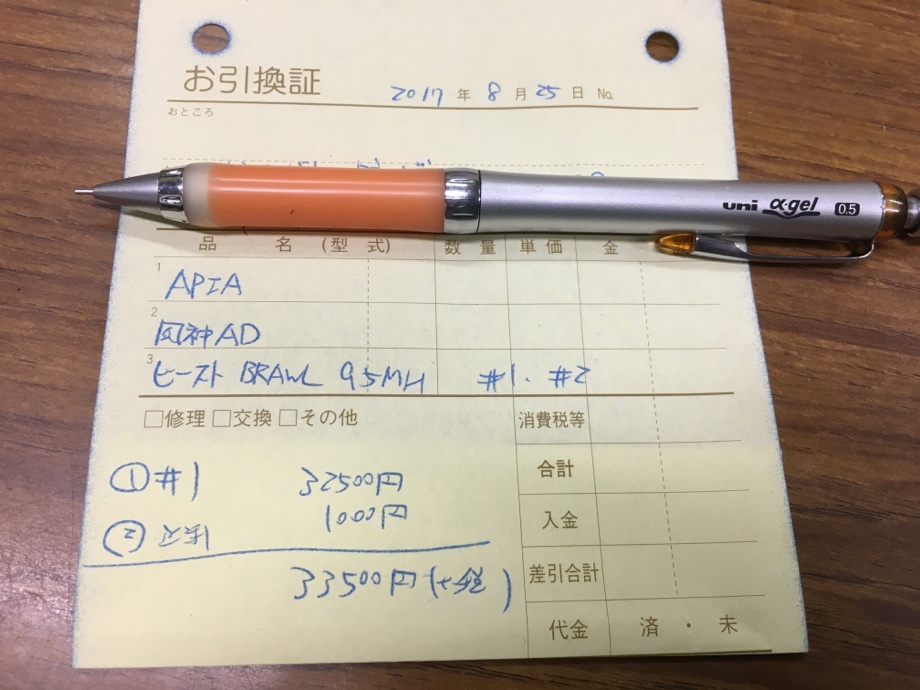 お引換証
2017 年 8 月 25 日 No.
おところ
uni α·gel 0.5
品 名 (型 式) 数 量 単 価 金
1 APIA
2 風神AD
3 ビースト BRAWL 95MH #1. #2
□修理 □交換 □その他 消費税等
合計
① #1 32500円
入金
② 送料 1000円
差引合計
33500円(+税)
代金 済 ・ 未